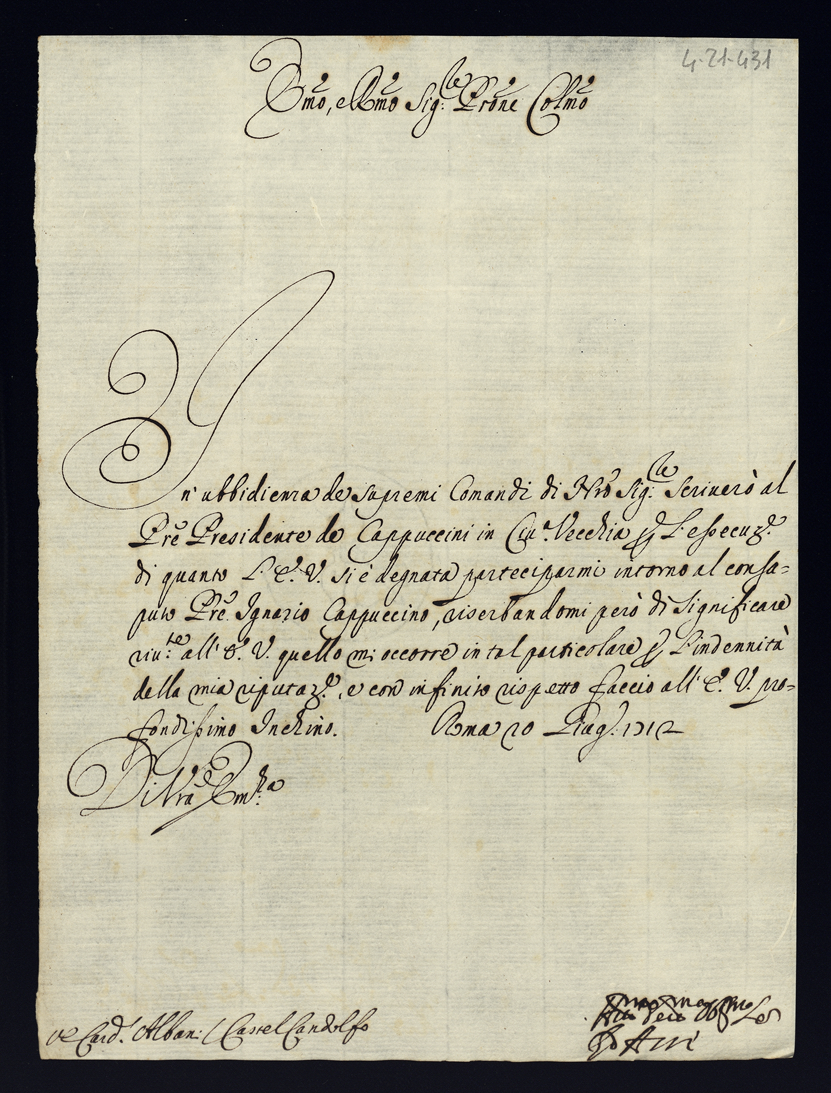 4-21-431
Emo, e Rmo Sig:re Prone Colmo
In ubbidienza de supremi Comandi di Nro Sig:re scriverò al
Pre Presidente de Cappuccini in Civ:a Vecchia per l'essecuz:e
di quanto l'E. V. si è degnata parteciparmi intorno al consa=
puto Pre Ignazio Cappuccino, riserbandomi però di significare
riv:te all'E. V. quello mi occorre in tal particolare per l'indennità
della mia riputaz:e, e con infinito rispetto faccio all'E. V. pro=
fondissimo Inchino. Roma 20 Giug: 1712
Di Vra Em:za
Card:l Albani / Castel Gandolfo